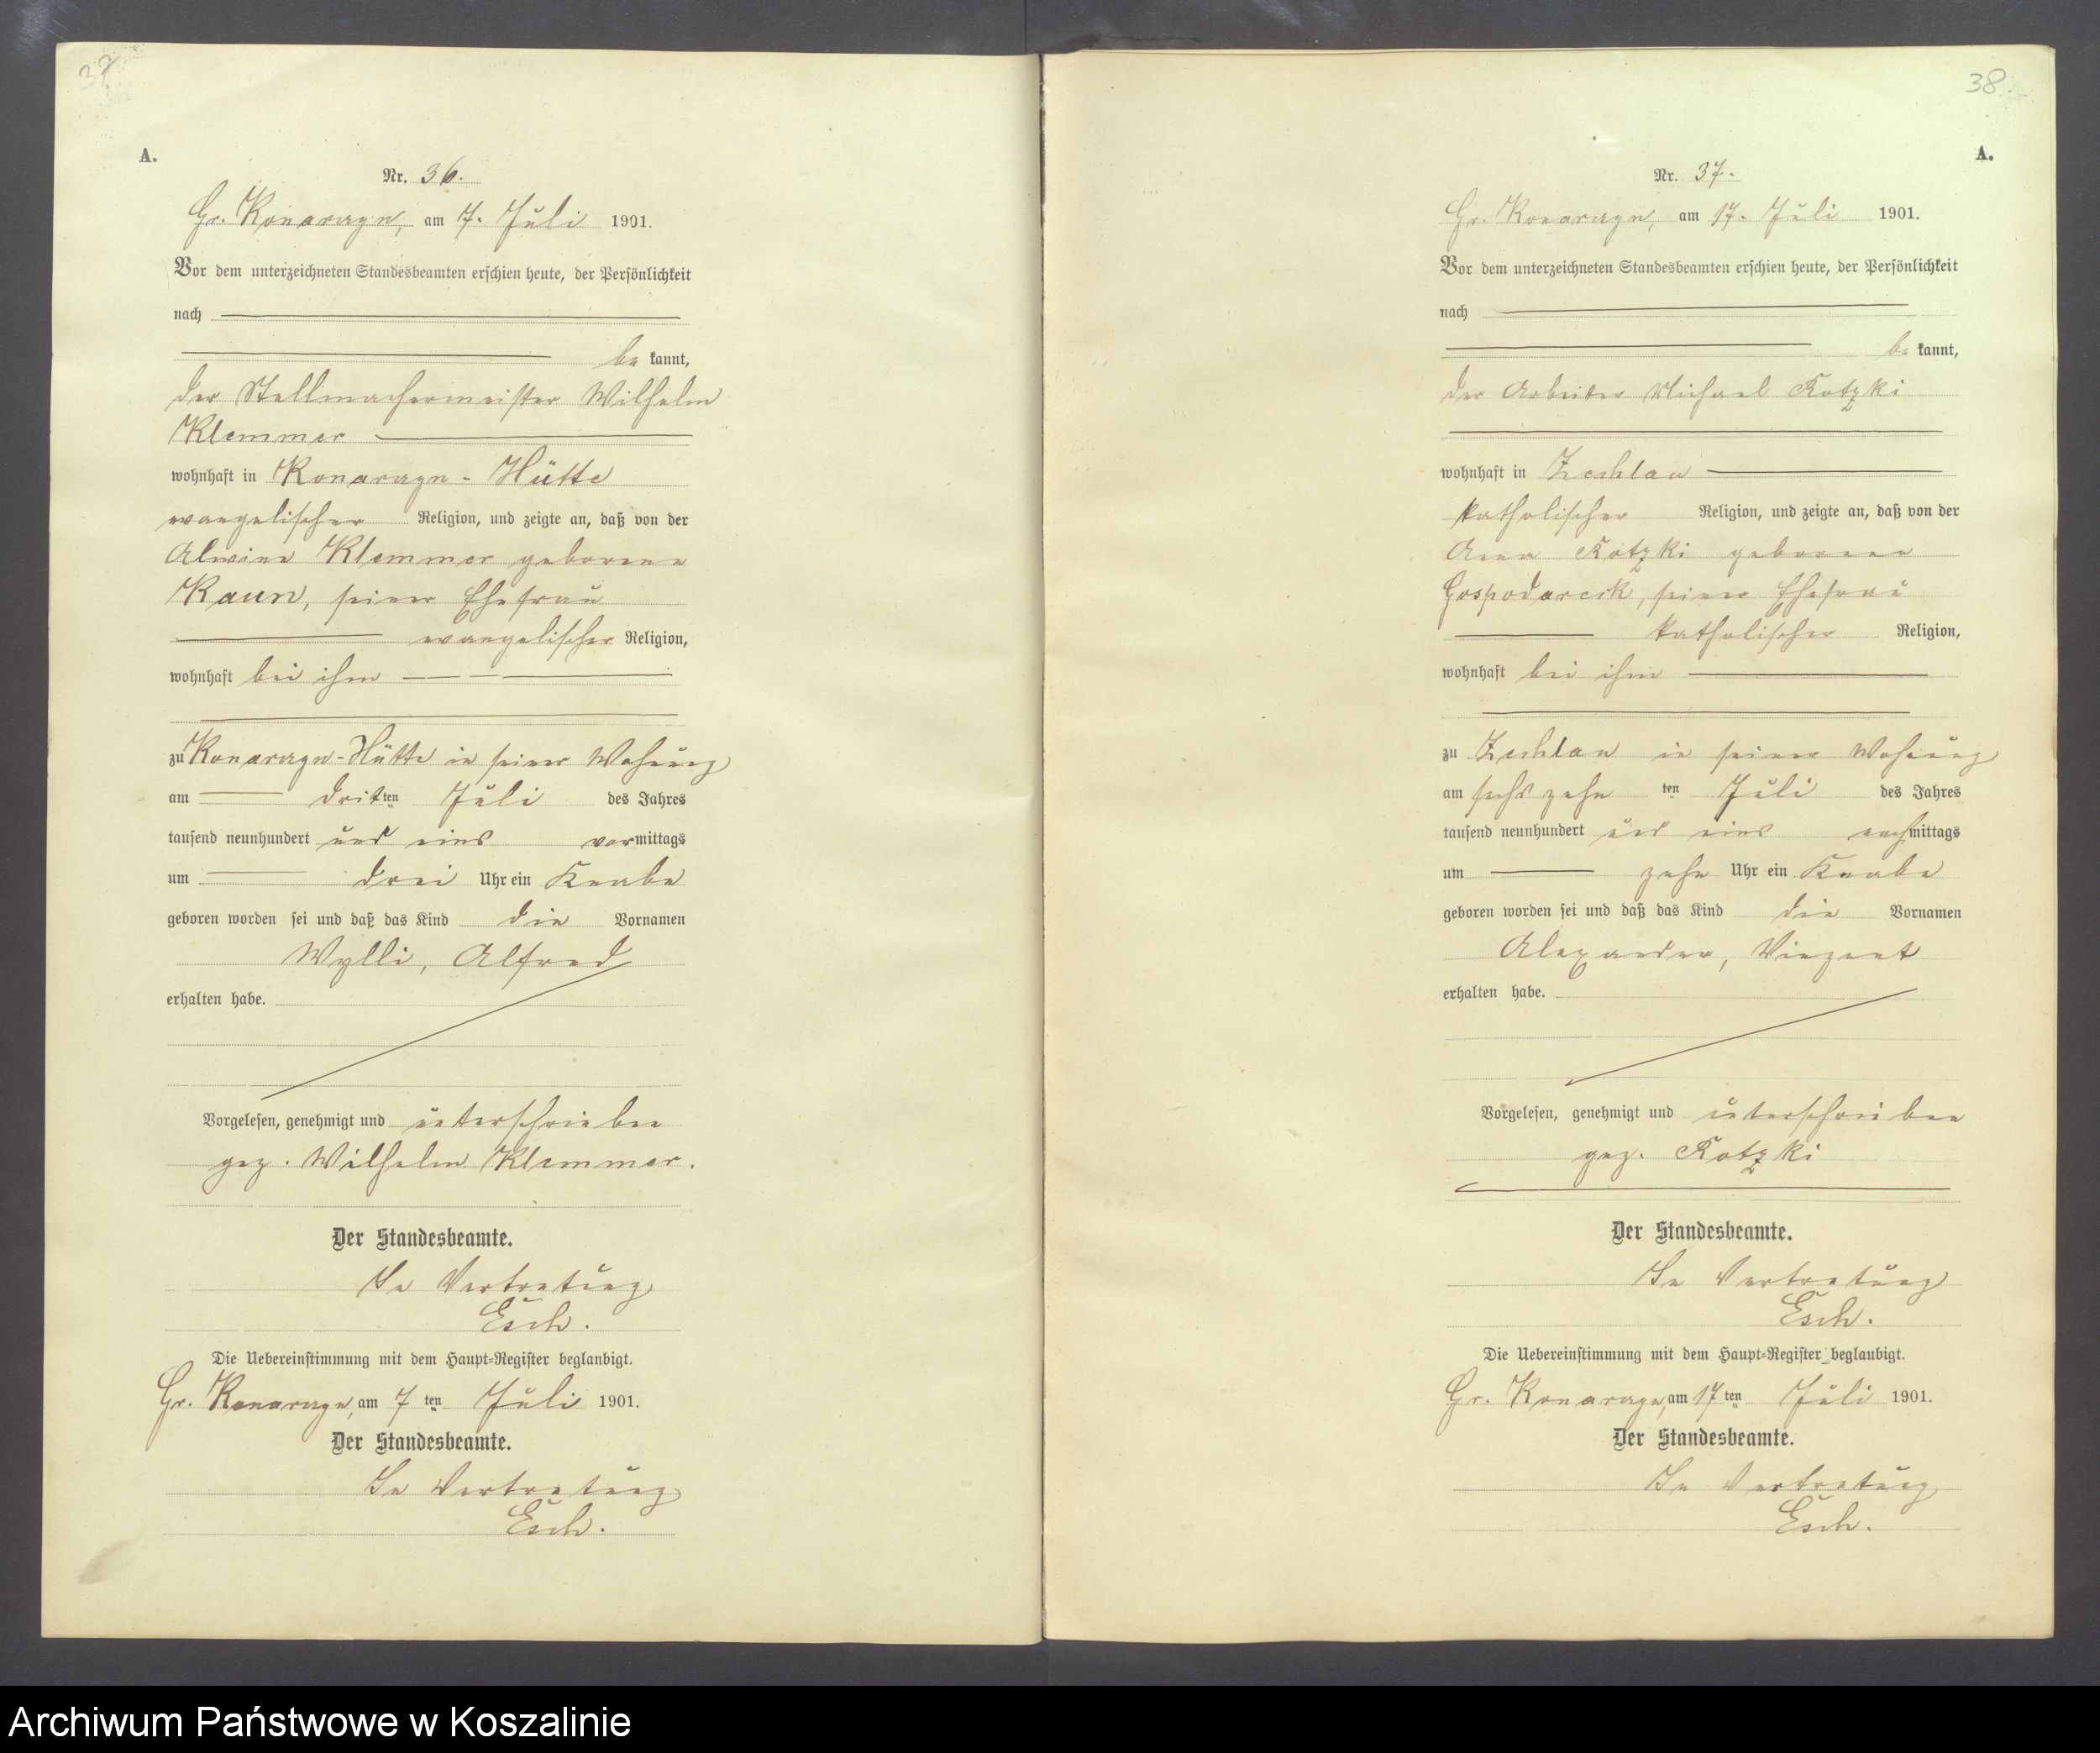 37
A.
Nr. 36.
Gr. Konarczyn, am 7. Juli 1901.
Vor dem unterzeichneten Standesbeamten erschien heute, der Persönlichkeit
nach
be kannt,
der Stellmachermeister Wilhelm
Klemmer
wohnhaft in Konarczyn-Hütte
evangelischer Religion, und zeigte an, daß von der
Alwine Klemmer geborene
Raun, seiner Ehefrau
evangelischer Religion,
wohnhaft bei ihm
zu Konarczyn-Hütte in seiner Wohnung
am dritten Juli des Jahres
tausend neunhundert und eins vormittags
um drei Uhr ein Knabe
geboren worden sei und daß das Kind die Vornamen
Wylli, Alfred
erhalten habe.
Vorgelesen, genehmigt und unterschrieben
gez. Wilhelm Klemmer.
Der Standesbeamte.
In Vertretung
Esch.
Die Uebereinstimmung mit dem Haupt-Register beglaubigt.
Gr. Konarczyn, am 7ten Juli 1901.
Der Standesbeamte.
In Vertretung
Esch.
38
A.
Nr. 37.
Gr. Konarczyn, am 17. Juli 1901.
Vor dem unterzeichneten Standesbeamten erschien heute, der Persönlichkeit
nach
be kannt,
der Arbeiter Michael Kotzki
wohnhaft in Zechlau
katholischer Religion, und zeigte an, daß von der
Anna Kotzki geborene
Gospodarek, seiner Ehefrau
katholischer Religion,
wohnhaft bei ihm
zu Zechlau in seiner Wohnung
am sechszehnten Juli des Jahres
tausend neunhundert und eins nachmittags
um zehn Uhr ein Knabe
geboren worden sei und daß das Kind die Vornamen
Alexander, Vinzent
erhalten habe.
Vorgelesen, genehmigt und unterschrieben
gez. Kotzki
Der Standesbeamte.
In Vertretung
Esch.
Die Uebereinstimmung mit dem Haupt-Register beglaubigt.
Gr. Konarczyn, am 17ten Juli 1901.
Der Standesbeamte.
In Vertretung
Esch.
Archiwum Państwowe w Koszalinie